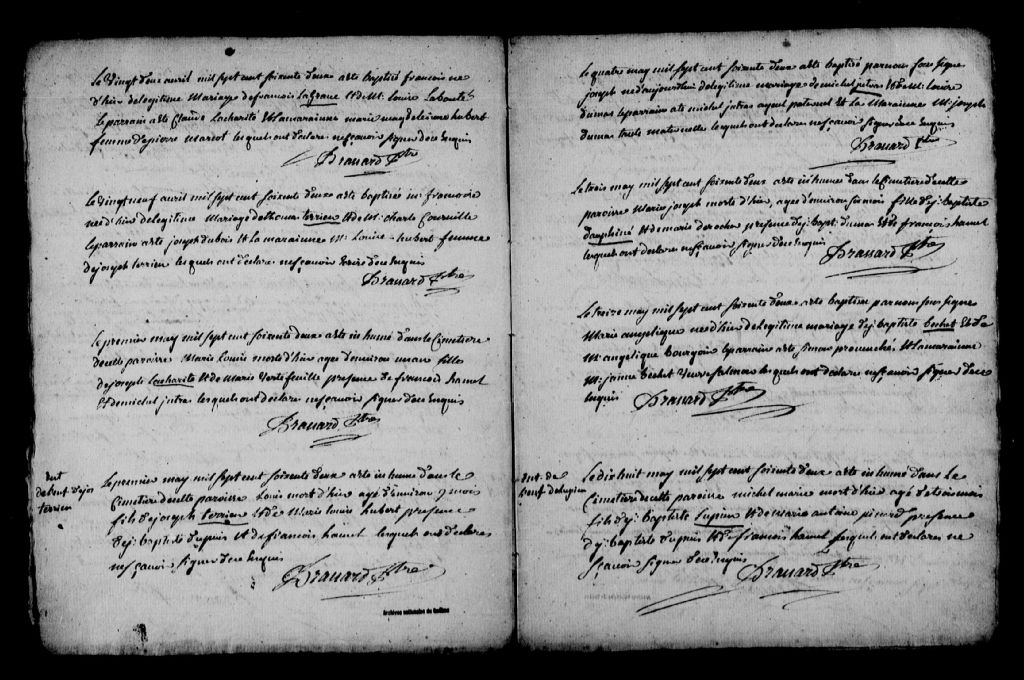 Le vingt deux avril mil sept cent soixante deux a ete baptisé francois ne
d'hier de legitime Mariage de francois LaGrave et de M: Louise Laboute
le parrain a ete Claire Lacharité et la maraine marie magdeleine hubert
femme d'epierre Marcot lesquels ont declare ne sçavoir signer de ce enquis
Brauard Ptre
Le vingt neuf avril mil sept cent soixante deux a ete baptisée m francoise
née d'hier de legitime Mariage de thoma terrien et de M: Charle Courville
le parrain a ete joseph dubois et la maraine M: Louise hubert femme
de joseph terrien lesquels ont declare ne sçavoir ecrire de ce enquis
Brauard Ptre
Le premier may mil sept cent soixante deux a ete inhumé dans le Cimetiere
de cette paroisse Marie Louise morte d'hier agee d'environ un an fille
de joseph Lacharité et de Marie Portefeuille presence de francois hamel
et de michel jutra lesquels ont declare ne sçavoir signer de ce enquis
Brauard Ptre
ent
de l'enf. d'ejos
terrien
Le premier may mil sept cent soixante deux a ete inhumé dans le
Cimetiere de cette paroisse Louis mort d'hier agé d'environ 9 mois
fils de joseph terrien et de Marie louise hubert presence
d'ej: baptiste dupuis et de francois hamel lesquels ont declares
ne sçavoir signer de ce enquis
Brauard Ptre
Archives nationales du Québec
Le quatre may mil sept cent soixante deux a ete baptisé par nous sous signe
joseph né d'aujourd'hui de legitime mariage de michel jutra et de M: louise
dumas le parrain a ete michel jutras ayeul paternel et la Maraine M: joseph
dumas tante maternelle lesquels ont declare ne sçavoir signer de ce enquis
Brauard Ptre
Le trois may mil sept cent soixante deux a ete inhumée dans le Cimetiere de cette
paroisse Marie joseph morte d'hier, agee d'environ six mois fille d'ej: Baptiste
dauphiné et de marie deroche presence d'ej: bapt: dumas et de francois hamel
lesquels ont declare ne sçavoir signer de ce enquis
Brassard Ptre
Le treize may mil sept cent soixante deux a ete baptisée par nous sous signe
Marie angelique née d'hier de legitime mariage d'ej: baptiste bechet et de
M: angelique Bourgoin le parrain a ete simon prouenché et la maraine
M: jeanne bechet lesquels ont declare ne sçavoir signer de ce
enquis Brauard Ptre
ent. de
l'enf. de lupien
Le dix huit may mil sept cent soixante deux a ete inhumé dans le
Cimetiere de cette paroisse michel marie mort d'hier agé de trois mois
fils d'ej: baptiste Lupien et de marie antoine pinard presence
d'ej: baptiste dupuis et de francois hamel lesquels ont declares ne
sçavoir signer de ce enquis
Brauard Ptre